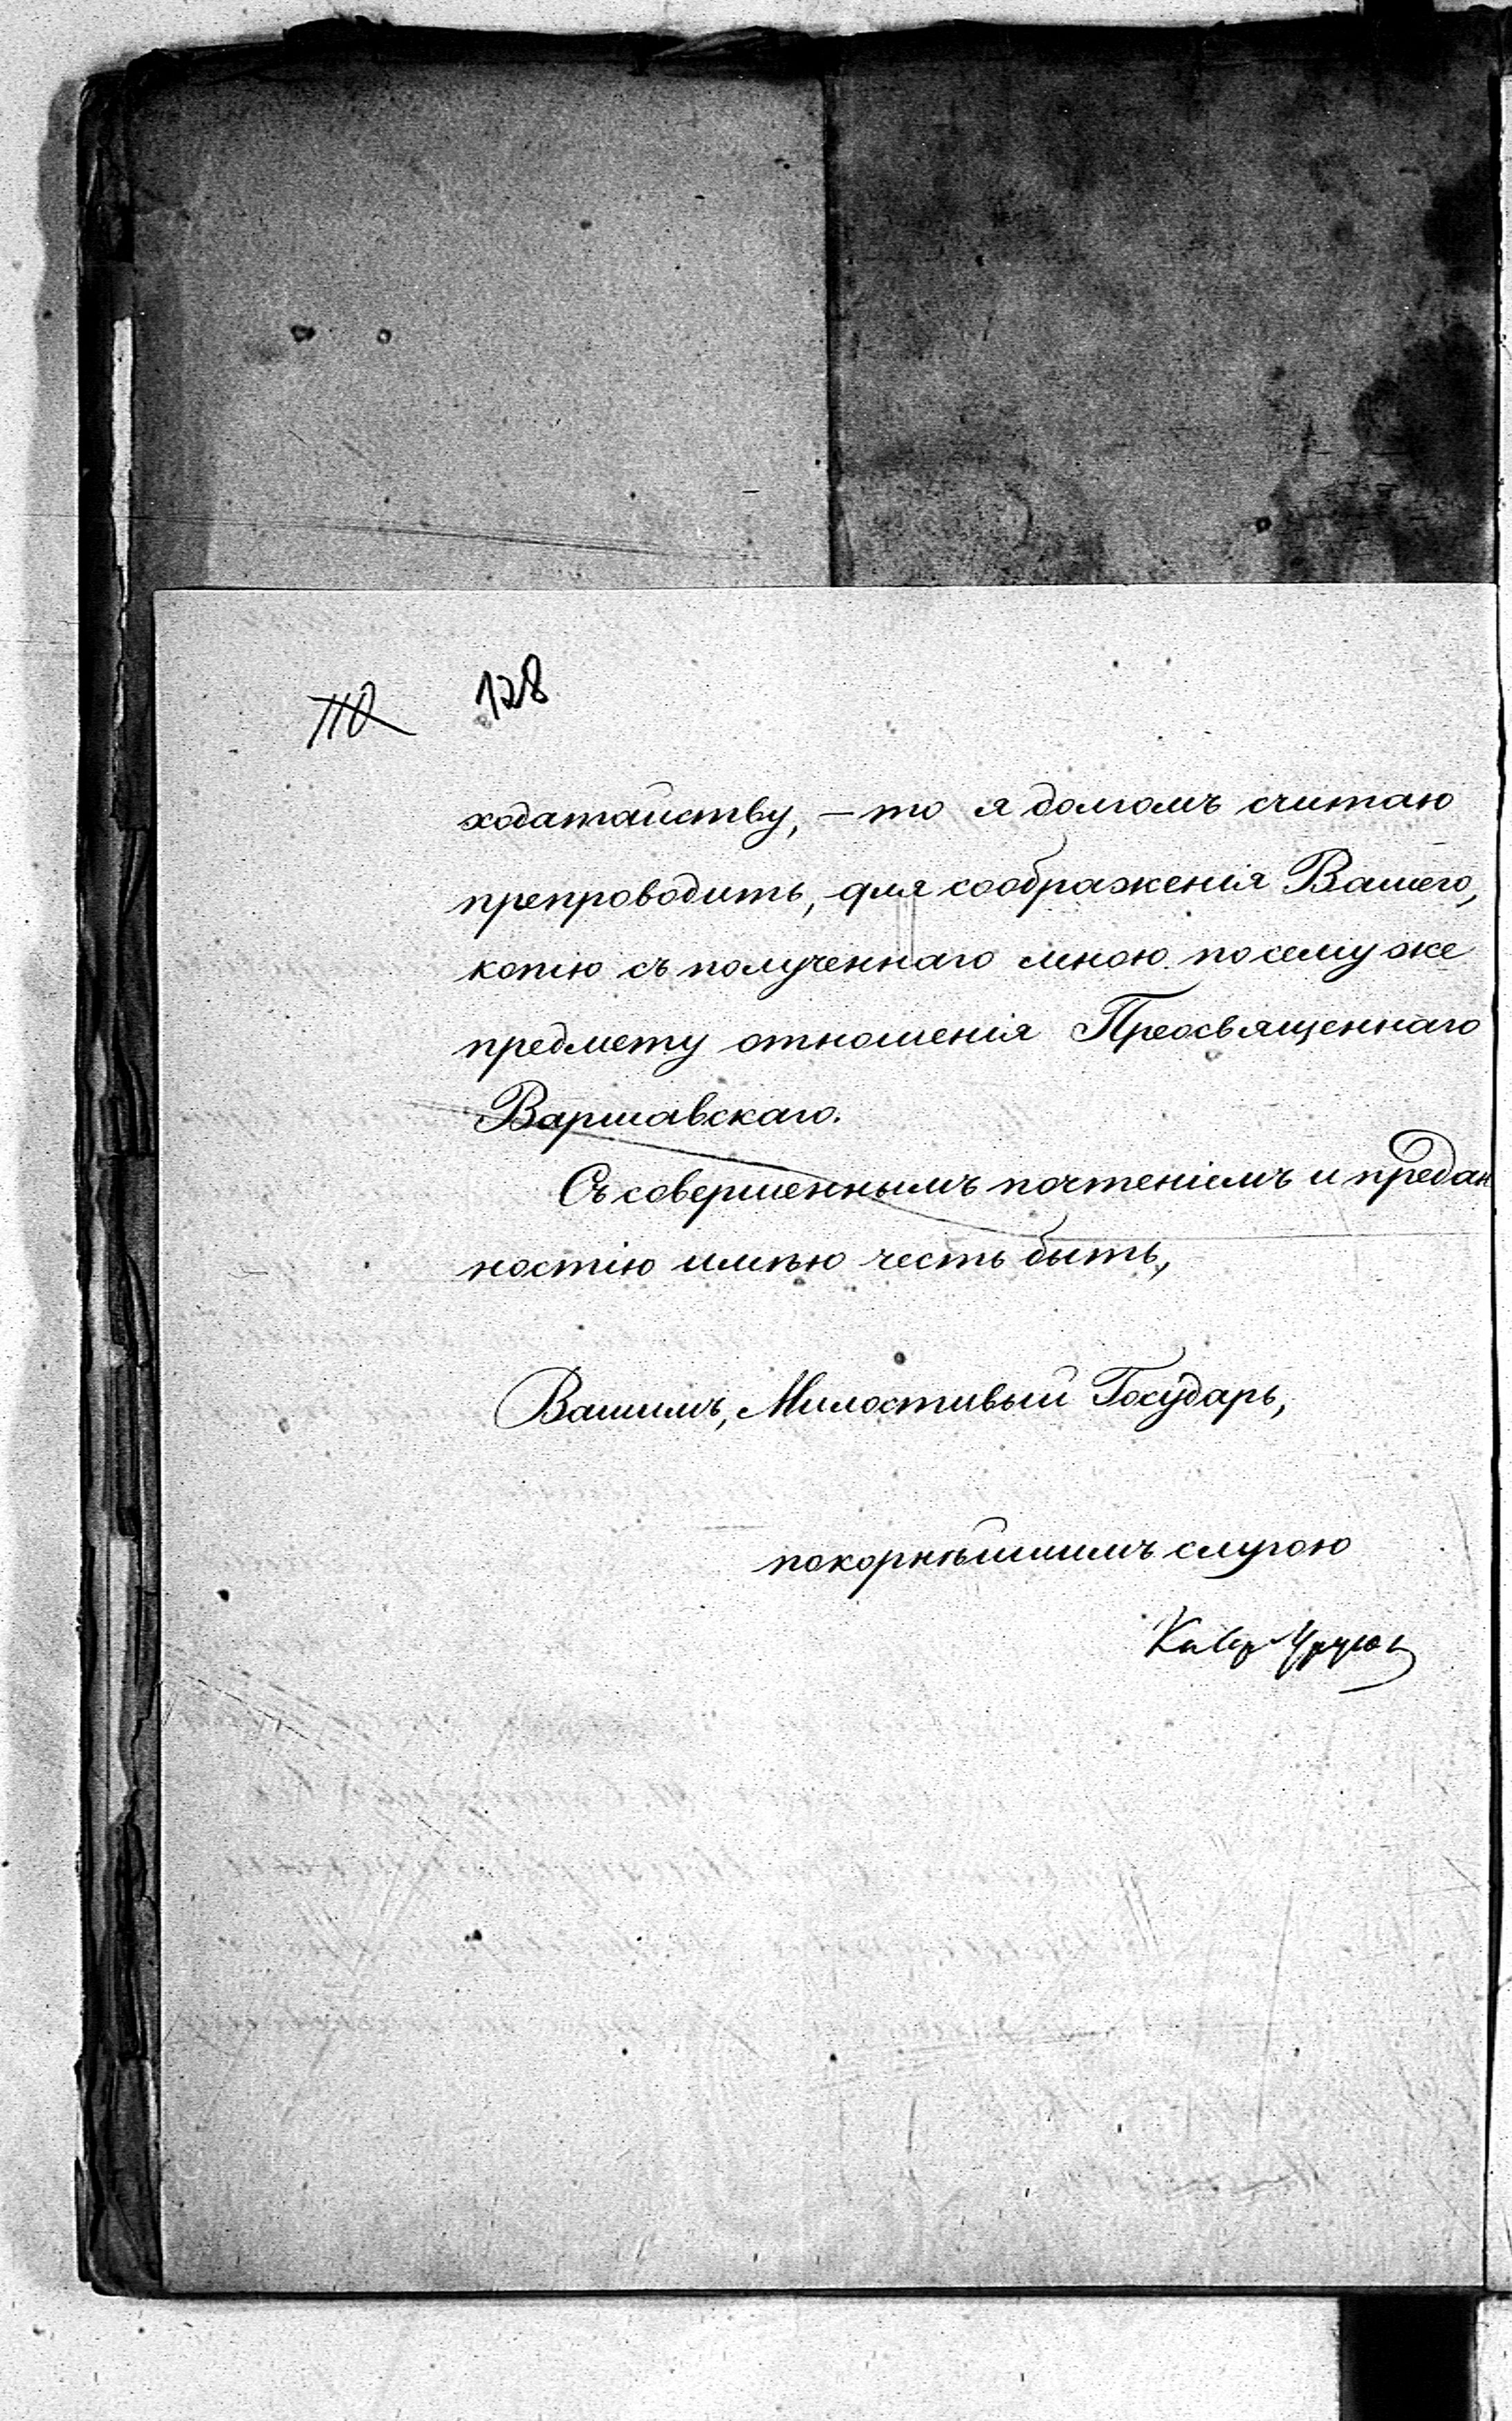 110 128
ходатайству, – то я долгомъ считаю
препроводить, для соображенія Вашего,
копію съ полученнаго мною по сему же
предмету отношенія Преосвященнаго
Варшавскаго.
Съ совершеннымъ почтеніемъ и предан
ностію имѣю честь быть,
Вашимъ, Милостивый Государь,
покорнѣйшимъ слугою